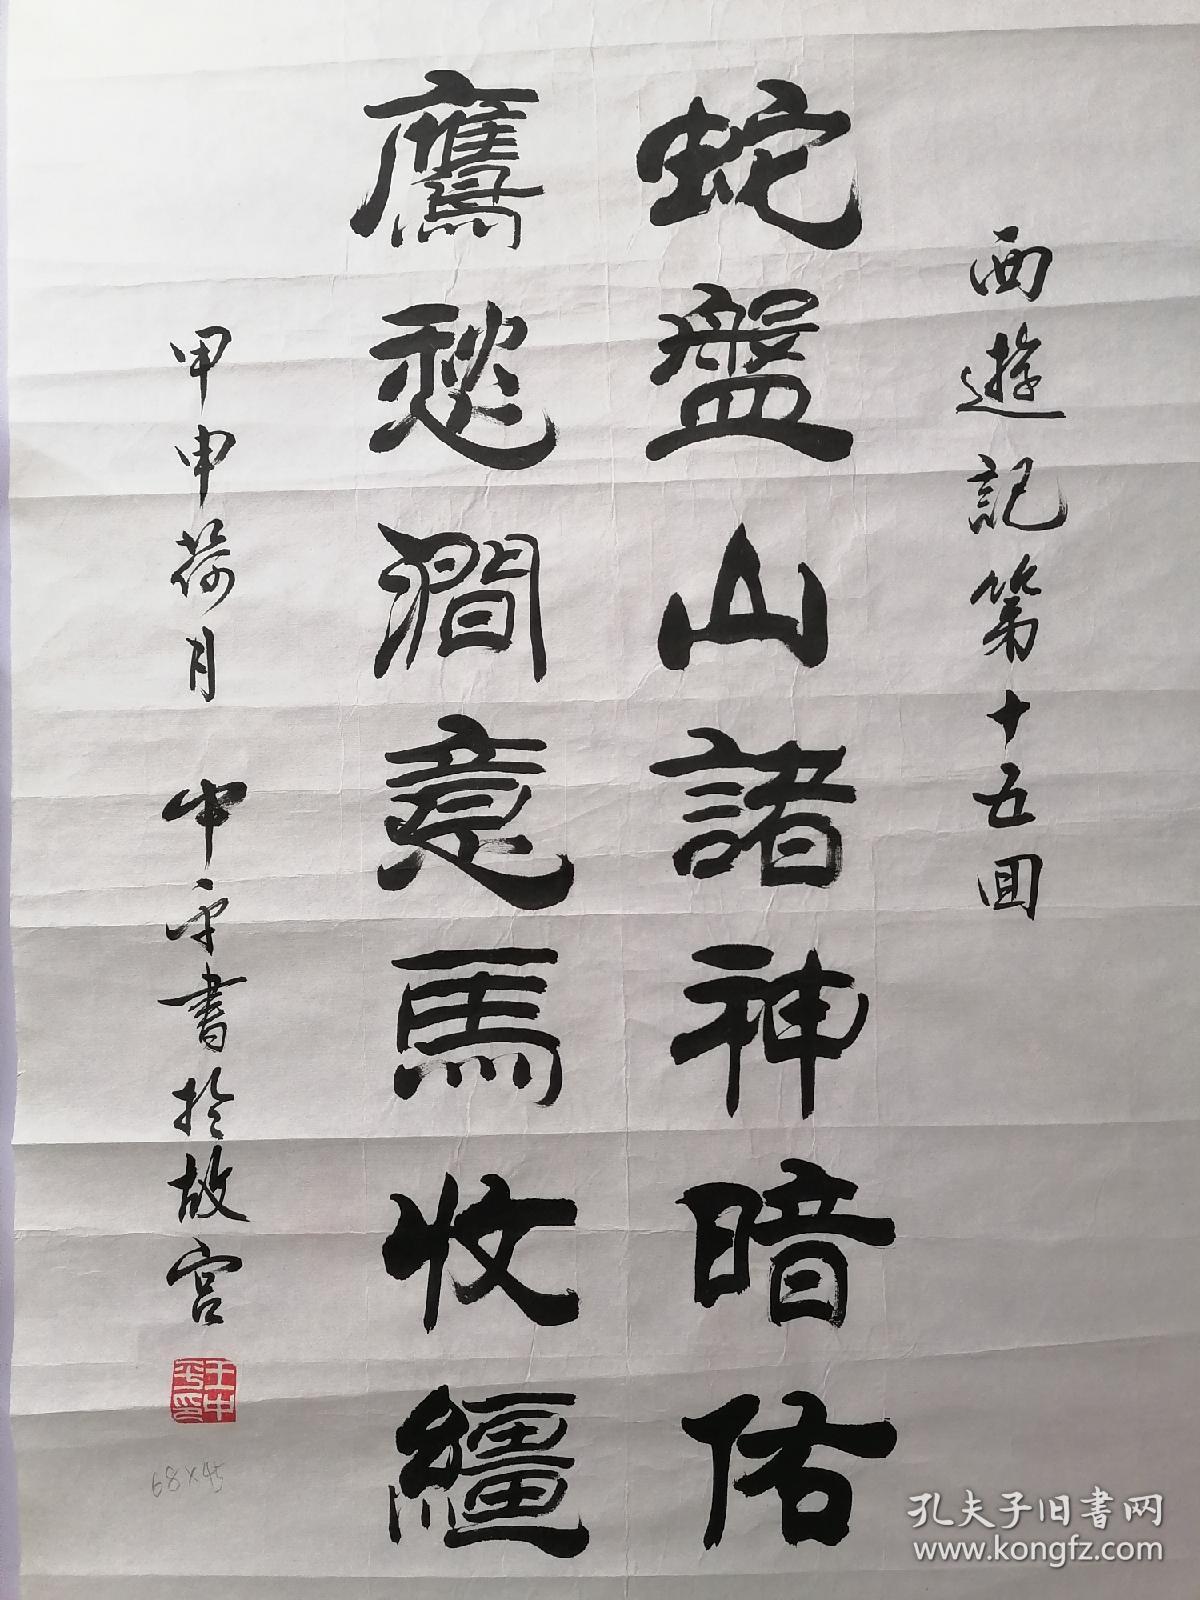 西遊記第十五回
蛇盤山諸神暗佑
鷹愁澗意馬收繮
甲申荷月 中平書於故宮
王中平印
68×45
孔夫子旧书网
www.kongfz.com